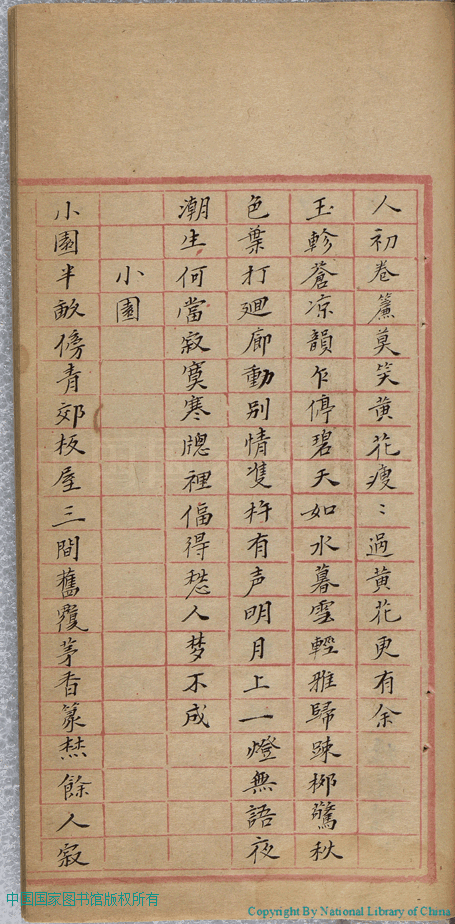 人初卷簾莫笑黃花瘦〻過黃花更有余
玉軫蒼凉韻乍停碧天如水暮雲輕雅歸踈栁驚秋
色葉打廻廊動別情隻杵有声明月上一燈無語夜
潮生何當寂寞寒牕裡偪得愁人梦不成
小園
小園半畝傍青郊板屋三間舊覆茅香篆㷊餘人寂
中国国家图书馆版权所有
Copyright By National Library of China